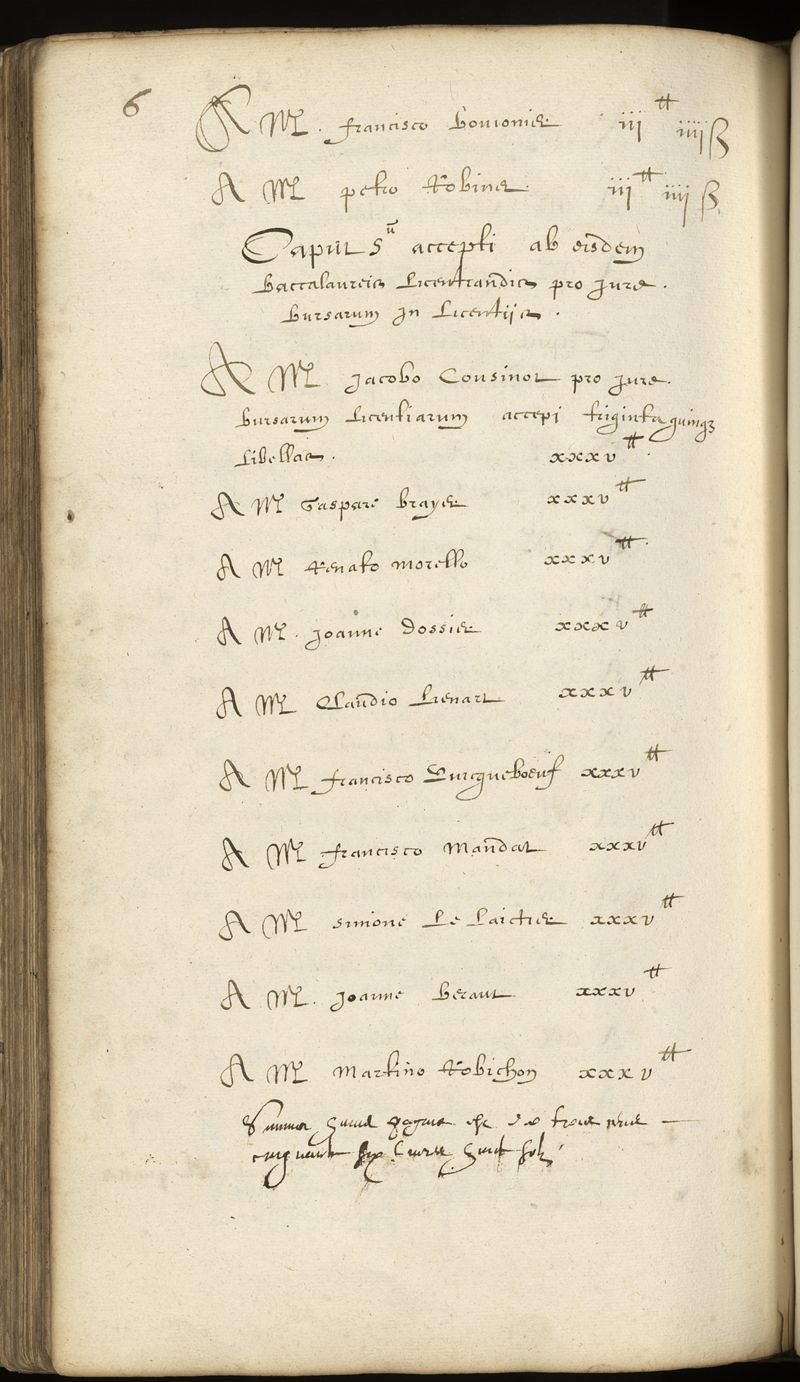 6
A Mᵉ. francisco bouvonier iiiᵗᵗ iiii ß
A Mᵉ petro Robine. iiiᵗᵗ iiii ß
Caput 5ᵘ̄ accepti ab eisdem
Baccalaureis Licentiandis pro Jure.
bursarum in Licentijs.
A Mᵉ Jacobo Cousinot pro Jure.
bursarum Licentiarum accepi triginta quinqꝫ
Libellas. xxxvᵗᵗ.
A Mᵉ Gaspare brayer xxxvᵗᵗ
A Mᵉ Renato morello xxxvᵗᵗ.
A Mᵉ. Joanne Dossier xxxvᵗᵗ
A Mᵉ Claudio Lienart xxxvᵗᵗ
A Mᵉ francisco Quicquebœuf xxxvᵗᵗ
A Mᵉ francisco Mandat xxxvᵗᵗ
A Mᵉ simone Le Laictier xxxvᵗᵗ
A Mᵉ. Joanne beraut xxxvᵗᵗ
A Mᵉ Martino Robichon xxxvᵗᵗ
Summa huius pagine est de trois cens
cinquante six livres huict solz